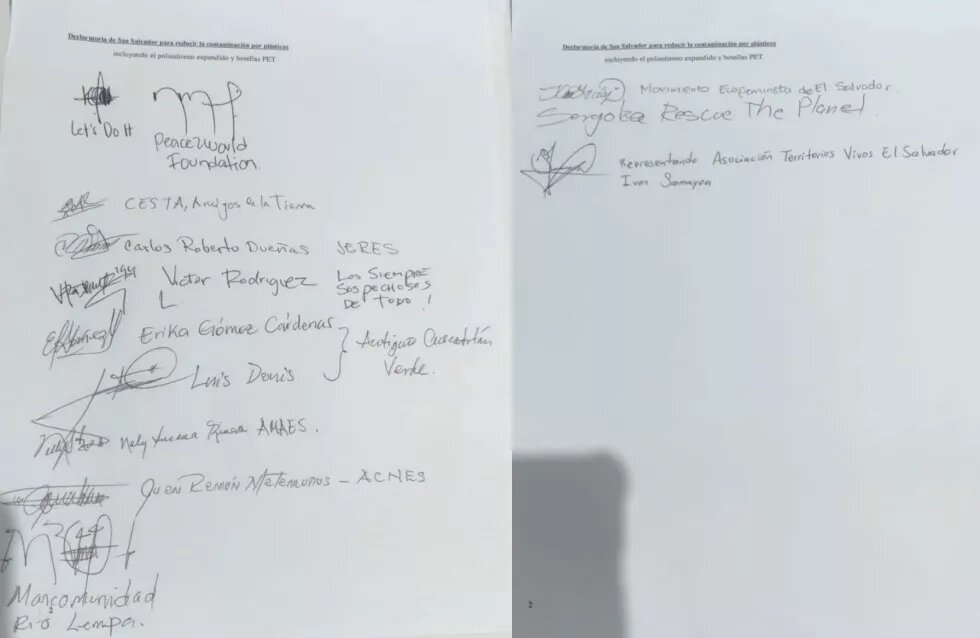 Declaratoria de San Salvador para reducir la contaminación por plásticos
incluyendo el poliestireno expandido y botellas PET
Let's Do It
Peace2World
Foundation.
CESTA, Amigos de la Tierra
Carlos Roberto Dueñas JERES
Victor Rodriguez
L.
Los Siempre
Sospechosos
de Todo!
Erika Gómez Cárdenas
Luis Donis
Antiguo Cuscatlán
Verde.
Nely Rivera AMAES.
Ramón - ACNES
Mancomunidad
Rio Lempa.
2
Declaratoria de San Salvador para reducir la contaminación por plásticos
incluyendo el poliestireno expandido y botellas PET
Movimento Ecofeminista de El Salvador
Rescue The Planet
Representando Asociación Territorios Vivos El Salvador
Ivon Samayoa
2